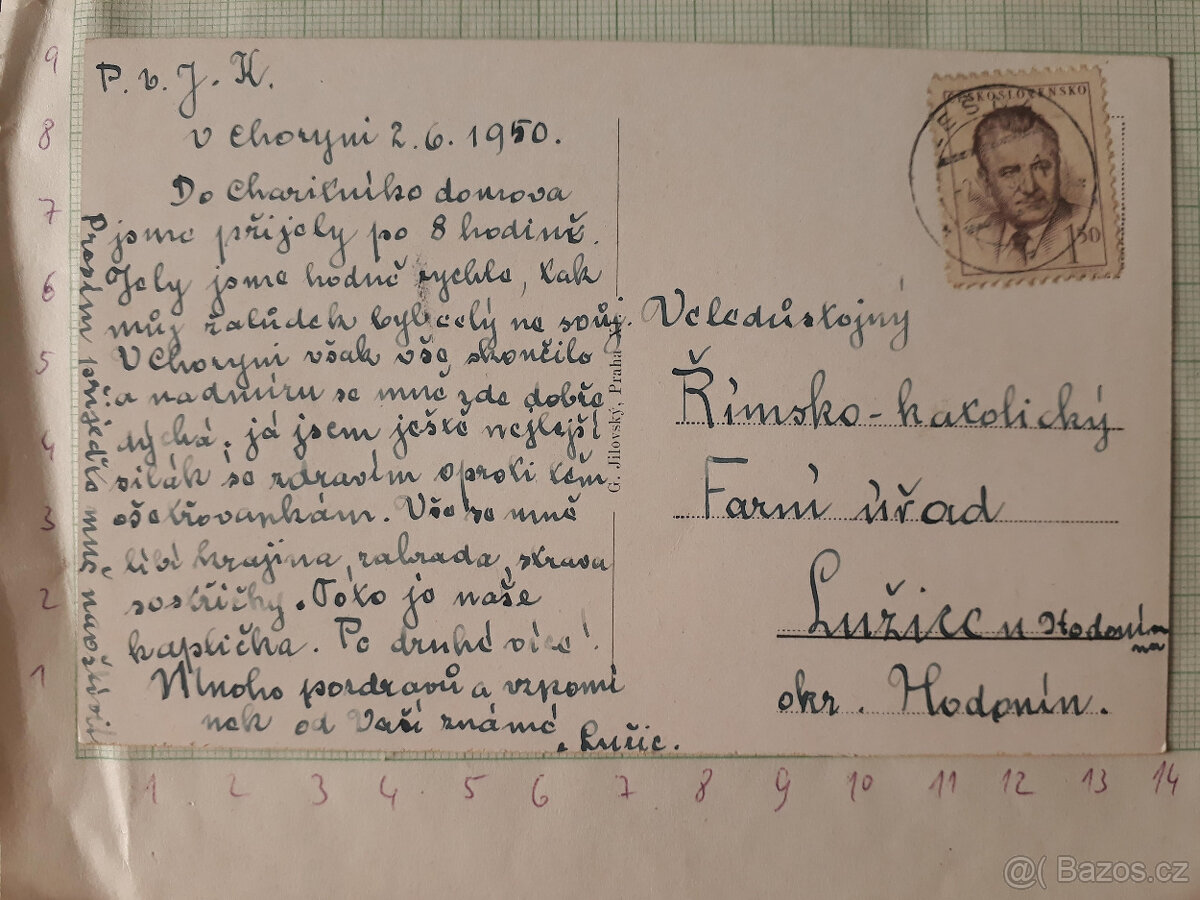 P. v. J. K.
V Choryni 2. 6. 1950.
Do Charitního domova
jsme přijely po 8 hodině.
Jely jsme hodně rychle, tak
můj žalůdek byl celý ne svůj.
V Choryni však vše skončilo
a nadmíru se mně zde dobře
dýchá, já jsem ještě nejlejší
silák se zdravím oproti těm
ošetřovankám. Vše se mně
líbí krajina, zahrada, strava
sestřičky. Toto je naše
kaplička. Po druhé více!
Mnoho pozdravů a vzpomí
nek od Vaší známé
Lužic.
Prosím přijeďte mne navštívit!
G. Jilovský, Praha
ČESKOSLOVENSKO
1 50
Veledůstojný
Římsko-katolický
Farní úřad
Lužice u Hodonína
okr. Hodonín.
9
8
7
6
5
4
3
2
1
1 2 3 4 5 6 7 8 9 10 11 12 13 14
@( Bazos.cz